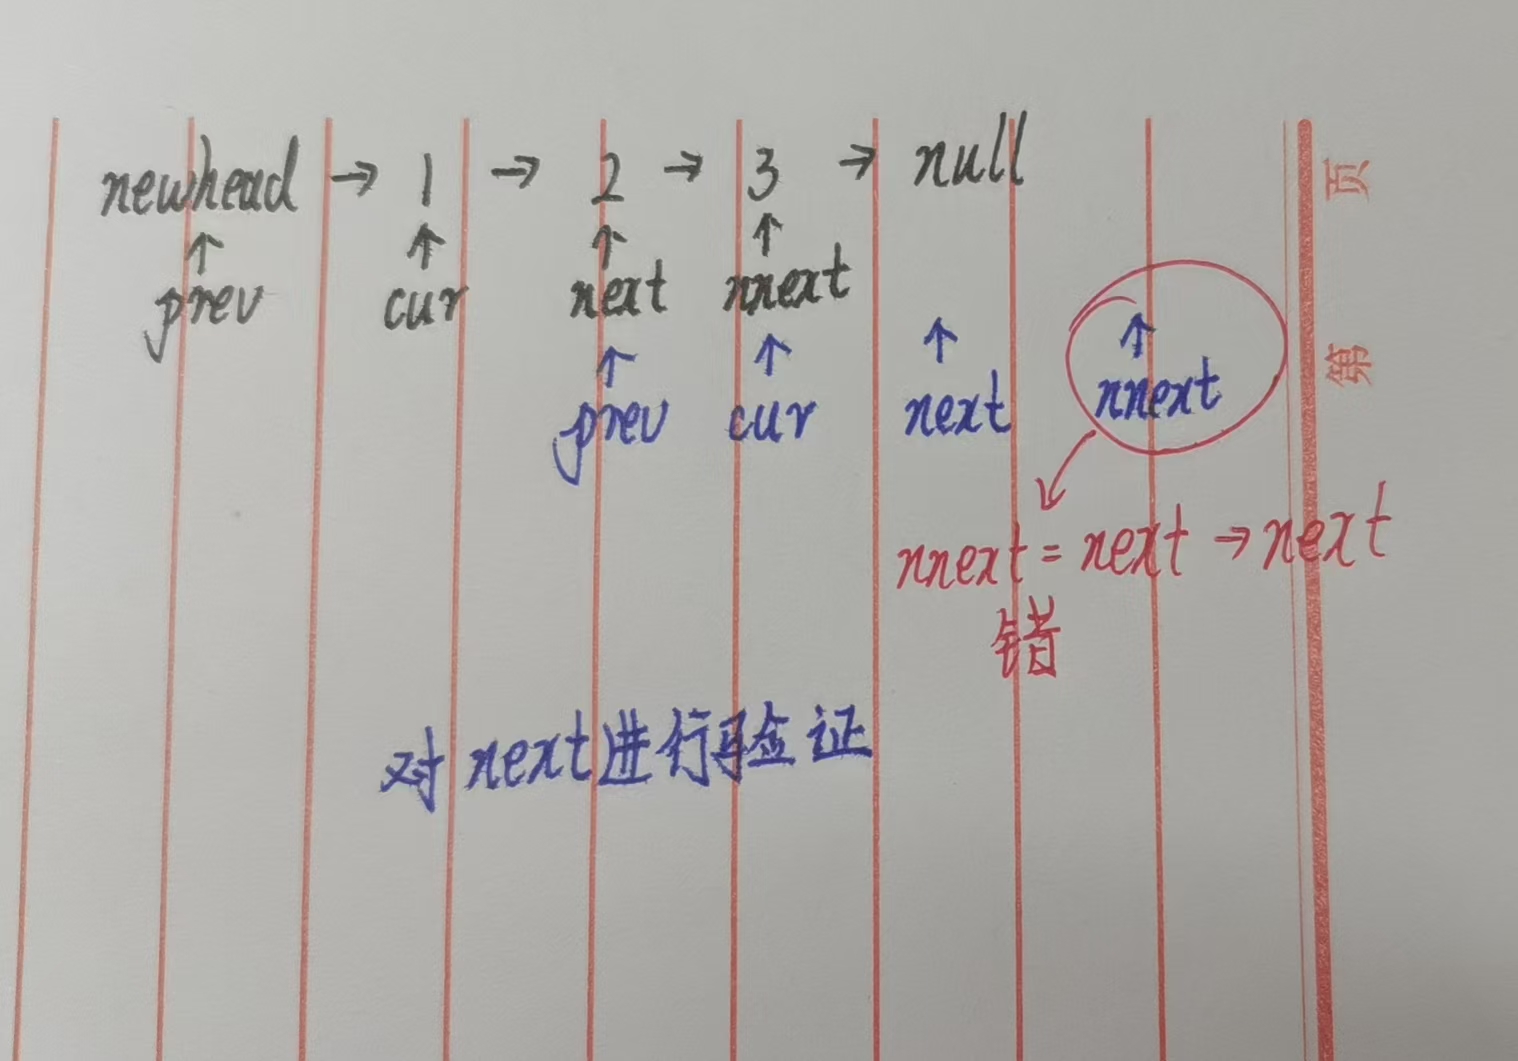 newhead → 1 → 2 → 3 → null
↑ ↑ ↑ ↑
prev cur next nnext
↑ ↑ ↑ ↑
prev cur next nnext
nnext = next → next
错
对next进行验证
第 页